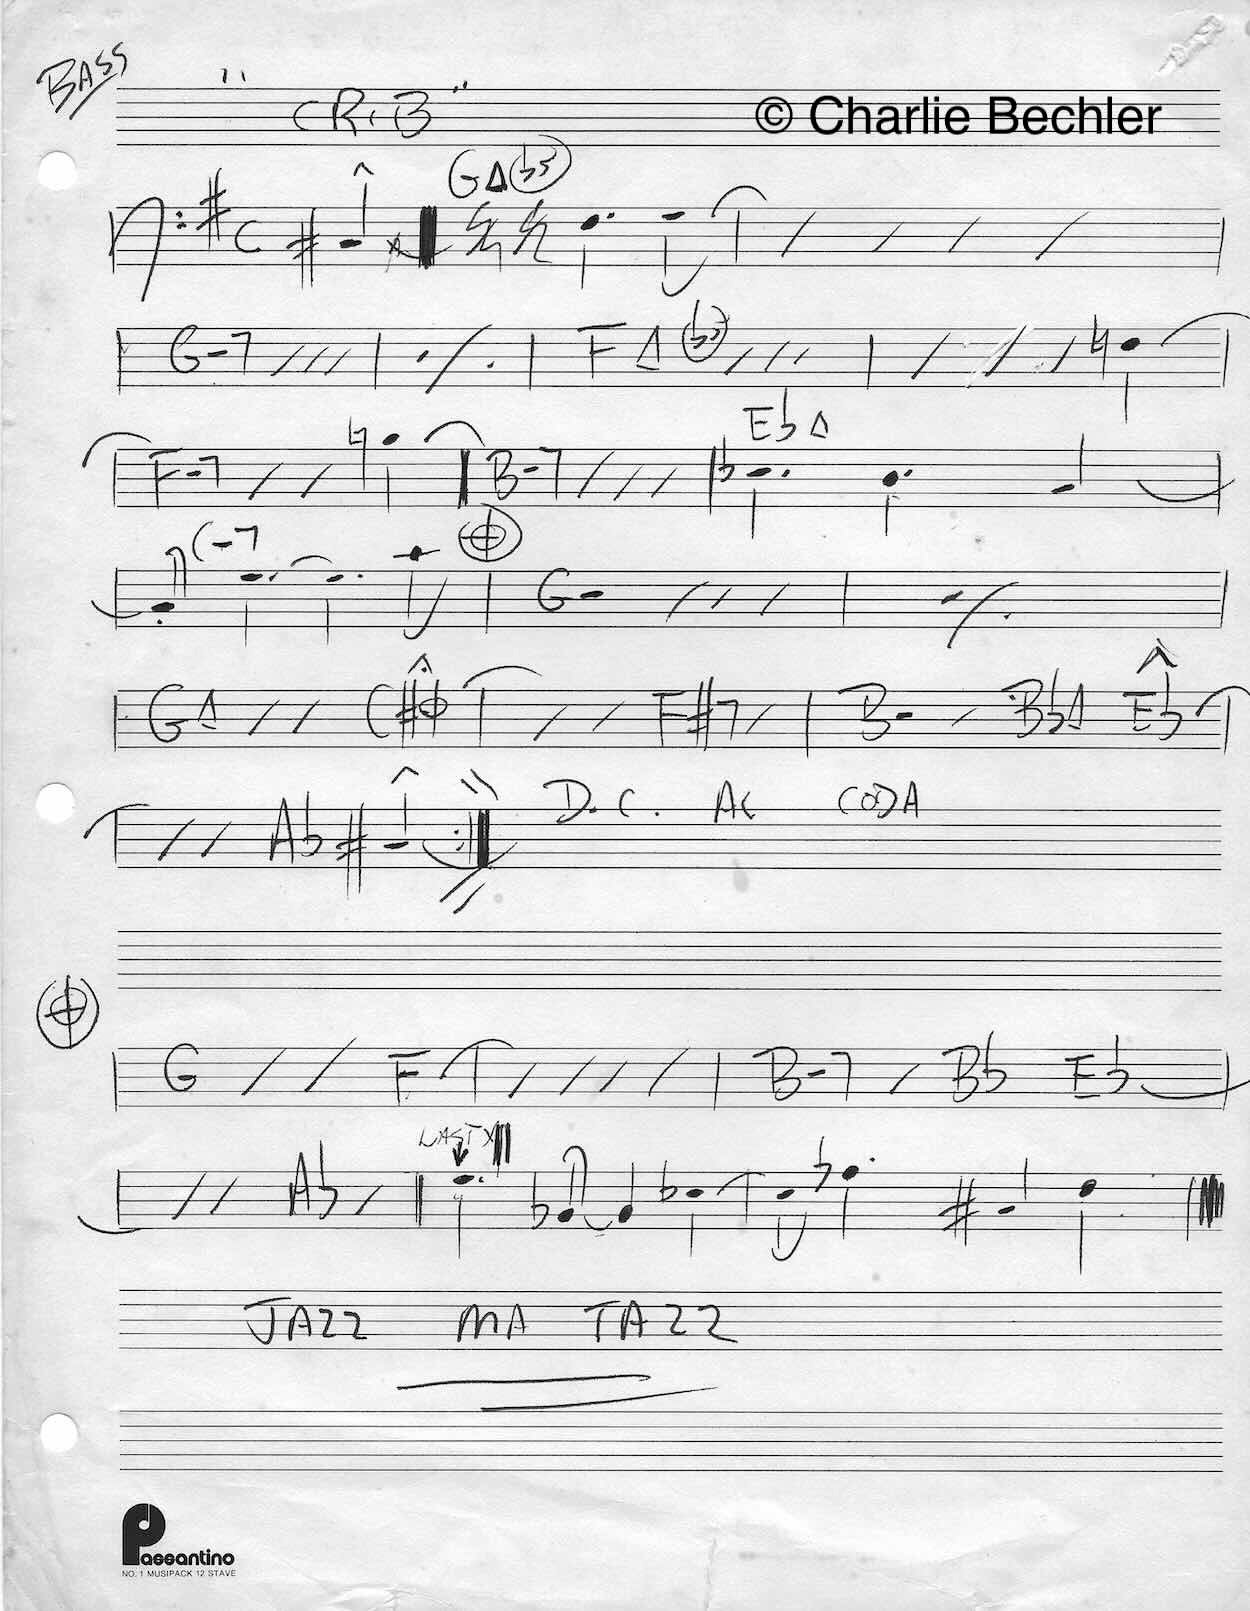 BASS
"CRIB"
© Charlie Bechler
C GΔ(b5)
G-7 FΔ(b5)
F-7 B-7 EbΔ
C-7
G-
GΔ C#ø F#7 B- BbΔ Eb
Ab D.C. AL CODA
G F B-7 Bb Eb
Ab LAST X
JAZZ MA TAZZ
Passantino
NO. 1 MUSIPACK 12 STAVE